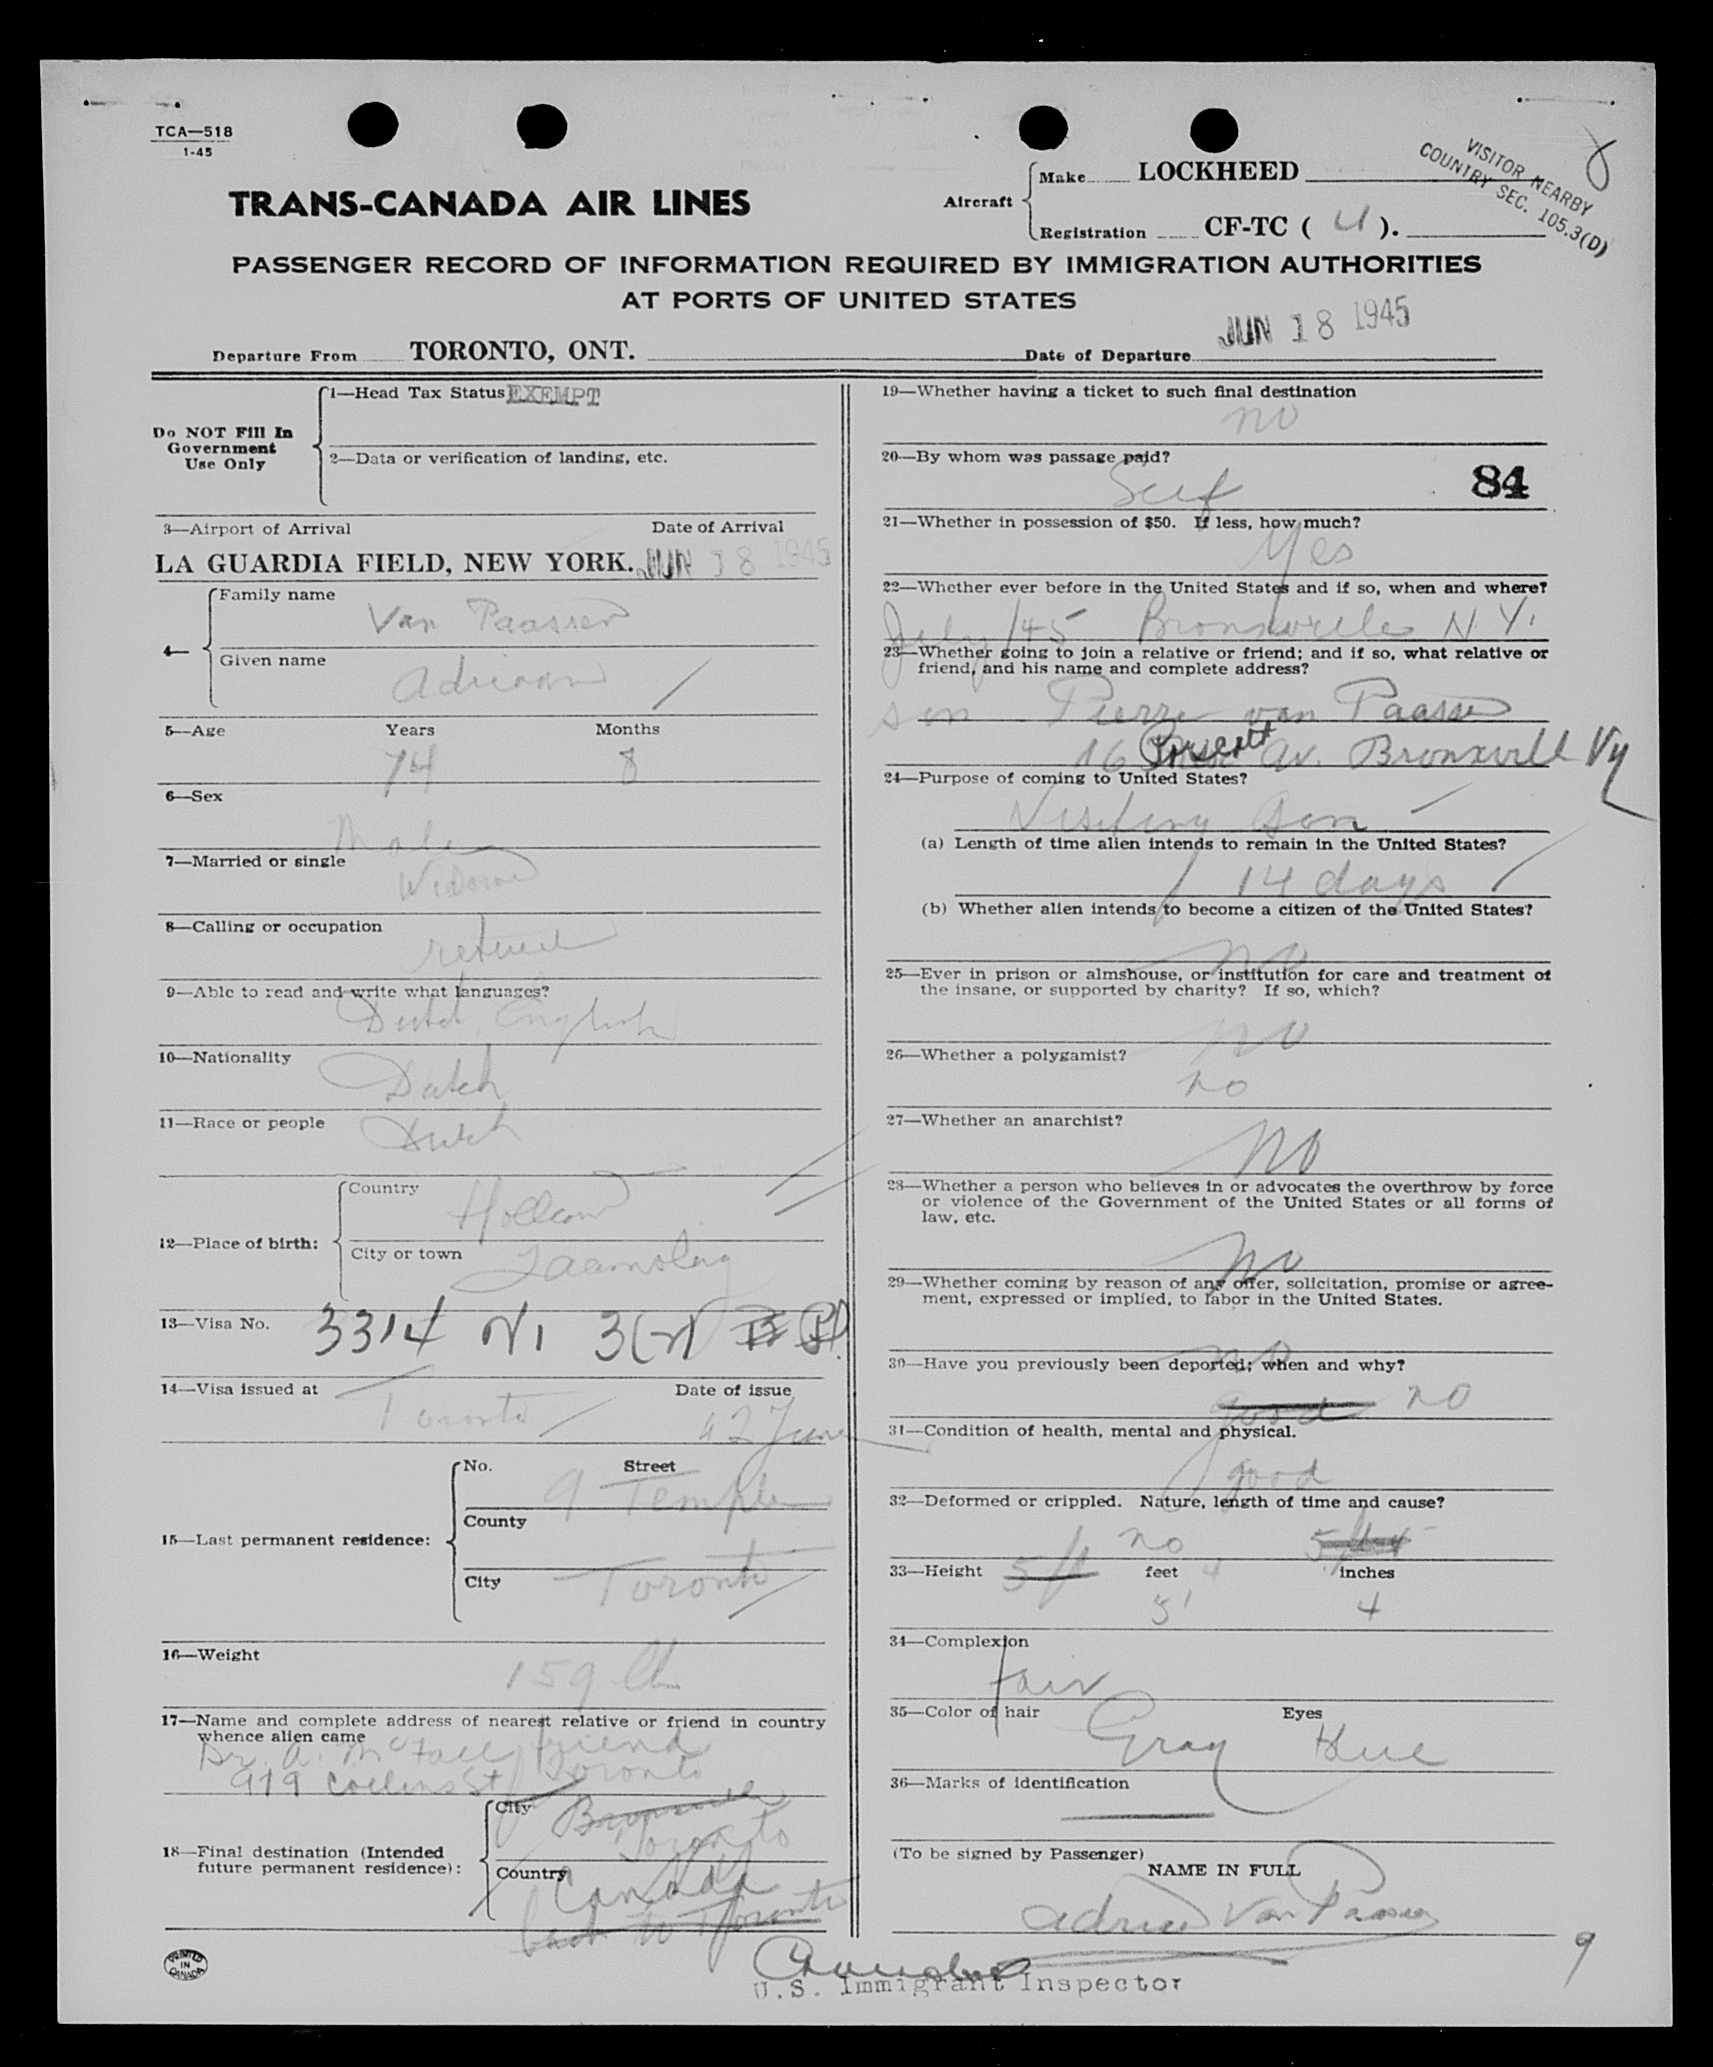 TCA—518
1-45
TRANS-CANADA AIR LINES
Aircraft
Make LOCKHEED
Registration CF-TC ( U ).
VISITOR NEARBY
COUNTRY SEC. 105.3(D)
PASSENGER RECORD OF INFORMATION REQUIRED BY IMMIGRATION AUTHORITIES
AT PORTS OF UNITED STATES
Departure From TORONTO, ONT.
Date of Departure JUN 18 1945
Do NOT Fill In
Government
Use Only
1—Head Tax Status EXEMPT
2—Data or verification of landing, etc.
3—Airport of Arrival Date of Arrival
LA GUARDIA FIELD, NEW YORK. JUN 18 1945
4—
Family name
Van Paassen
Given name
Adriaan
5—Age Years Months
74 8
6—Sex
Male
7—Married or single
Widower
8—Calling or occupation
retired
9—Able to read and write what languages?
Dutch, English
10—Nationality
Dutch
11—Race or people
Dutch
12—Place of birth:
Country
Holland
City or town
13—Visa No. 3314
14—Visa issued at Date of issue
Toronto June
15—Last permanent residence:
No. Street
9 Temple
County
City
Toronto
16—Weight
159 lb
17—Name and complete address of nearest relative or friend in country
whence alien came
Dr. A. friend
979 Collins St Toronto
18—Final destination (Intended
future permanent residence):
City
Bronxville
Toronto
Country
Canada
back to Toronto
PRINTED
IN
CANADA
19—Whether having a ticket to such final destination
no
20—By whom was passage paid?
Self
84
21—Whether in possession of $50. If less, how much?
Yes
22—Whether ever before in the United States and if so, when and where?
July /45 Bronxville N Y.
23—Whether going to join a relative or friend; and if so, what relative or
friend, and his name and complete address?
son Pierre van Paassen
16 Prescott Av. Bronxville Ny
24—Purpose of coming to United States?
Visiting Son
(a) Length of time alien intends to remain in the United States?
14 days
(b) Whether alien intends to become a citizen of the United States?
no
25—Ever in prison or almshouse, or institution for care and treatment of
the insane, or supported by charity? If so, which?
no
26—Whether a polygamist?
no
27—Whether an anarchist?
no
28—Whether a person who believes in or advocates the overthrow by force
or violence of the Government of the United States or all forms of
law, etc.
no
29—Whether coming by reason of any offer, solicitation, promise or agree-
ment, expressed or implied, to labor in the United States.
no
30—Have you previously been deported; when and why?
good no
31—Condition of health, mental and physical.
good
32—Deformed or crippled. Nature, length of time and cause?
no
33—Height 5 ft feet 4 inches
5' 4
34—Complexion
fair
35—Color of hair Eyes
Gray blue
36—Marks of identification
(To be signed by Passenger)
NAME IN FULL
Adriaan Van Paassen
U.S. Immigrant Inspector
9